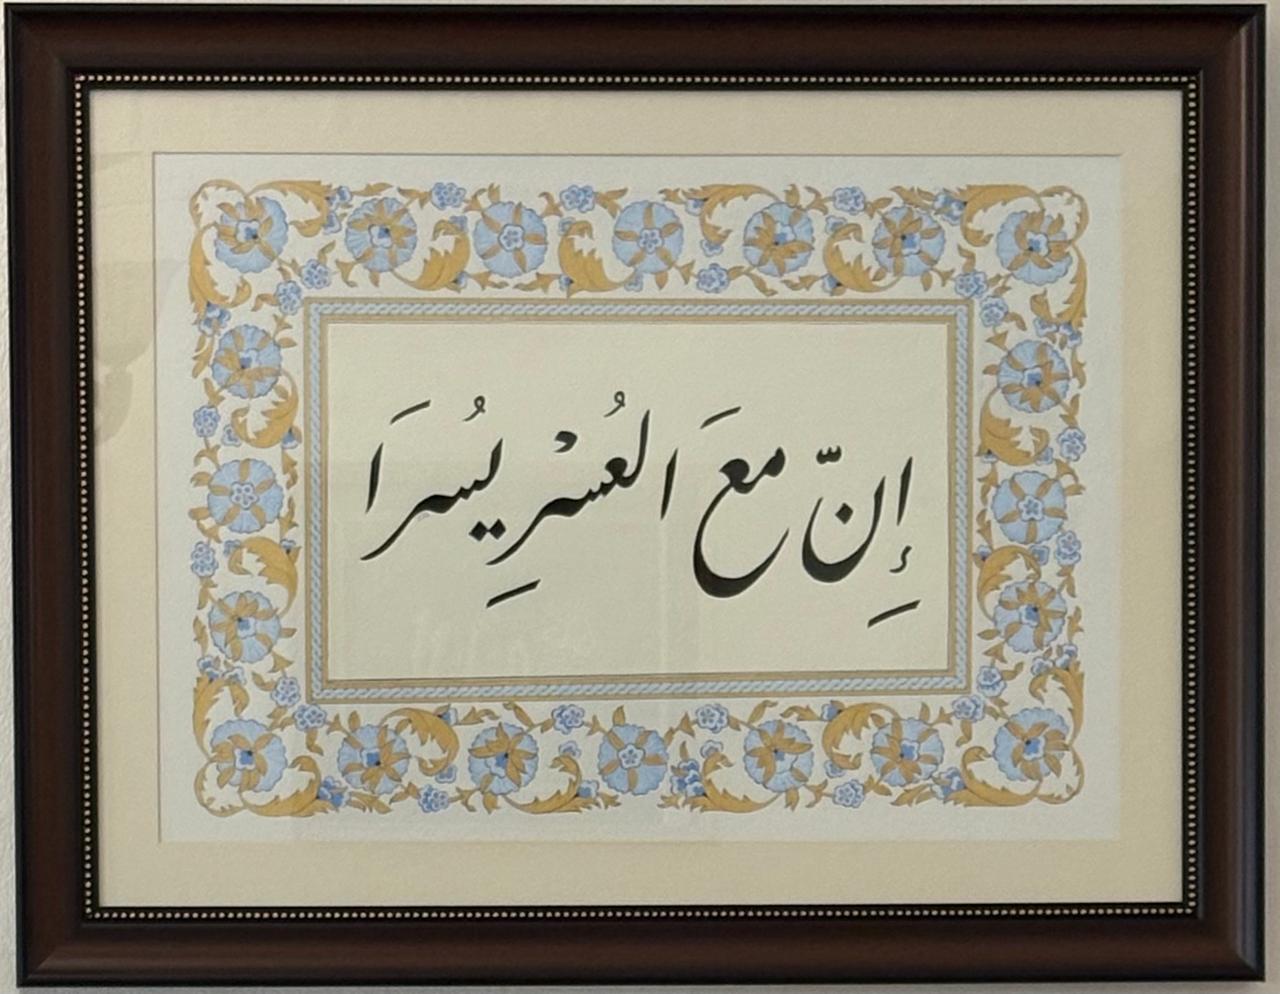 إِنّ معَ العُسْرِ يُسرَا